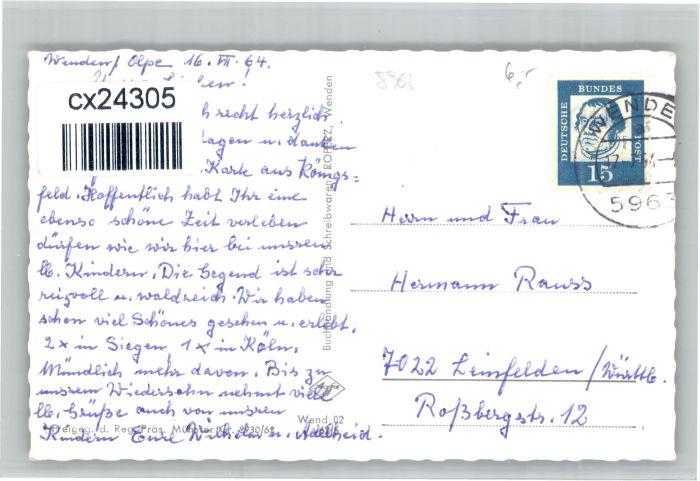 Wenden/Olpe 16. VII. 64.
cx24305
recht herzlich
danken
Karte aus Königs=
feld. Hoffentlich habt Ihr eine
ebenso schöne Zeit verleben
dürfen wie wir hier bei unsren
lb. Kindern. Die Gegend ist sehr
reizvoll u. waldreich. Wir haben
schon viel Schönes gesehen u. erlebt.
2x in Siegen 1x in Köln.
Mündlich mehr davon. Bis zu
unsrem Wiedersehn nehmt viele
lb. Grüße auch von unsren
Kindern Eure Wilhelm u. Adelheid.
Freigeg. d. Reg. Präs. Münster Nr. 2630/62
Wend 02
Agfa
Buchhandlung und Schreibwaren Wenden
5963
6,-
DEUTSCHE
BUNDES
POST
15
WENDEN
5963
Herrn und Frau
Hermann Rauss
7022 Leinfelden/Württb.
Roßbergstr. 12